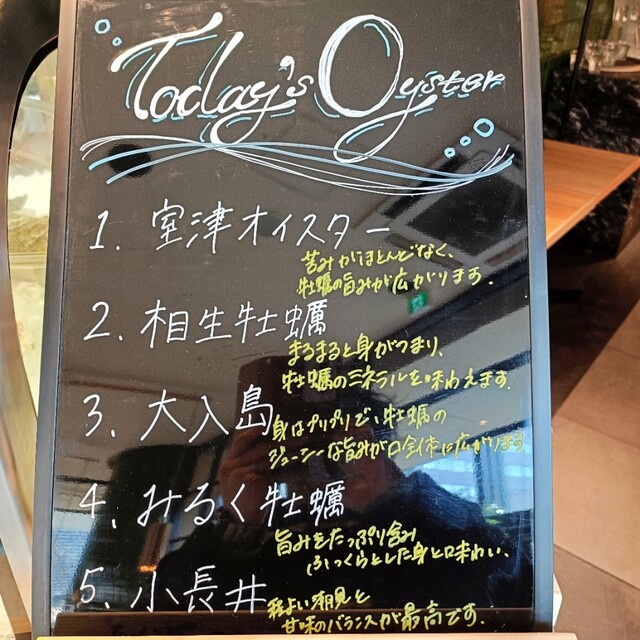 Today's Oyster
1. 室津オイスター
苦みがほとんどなく、
牡蠣の旨みが広がります.
2. 相生牡蠣
まるまると身がつまり、
牡蠣のミネラルを味わえます.
3. 大入島
身はプリプリで、牡蠣の
ジューシーな旨みが口全体に広がります
4. みるく牡蠣
旨みをたっぷり含み
ふっくらとした身と味わい、
5. 小長井
程よい潮見と
甘味のバランスが最高です.